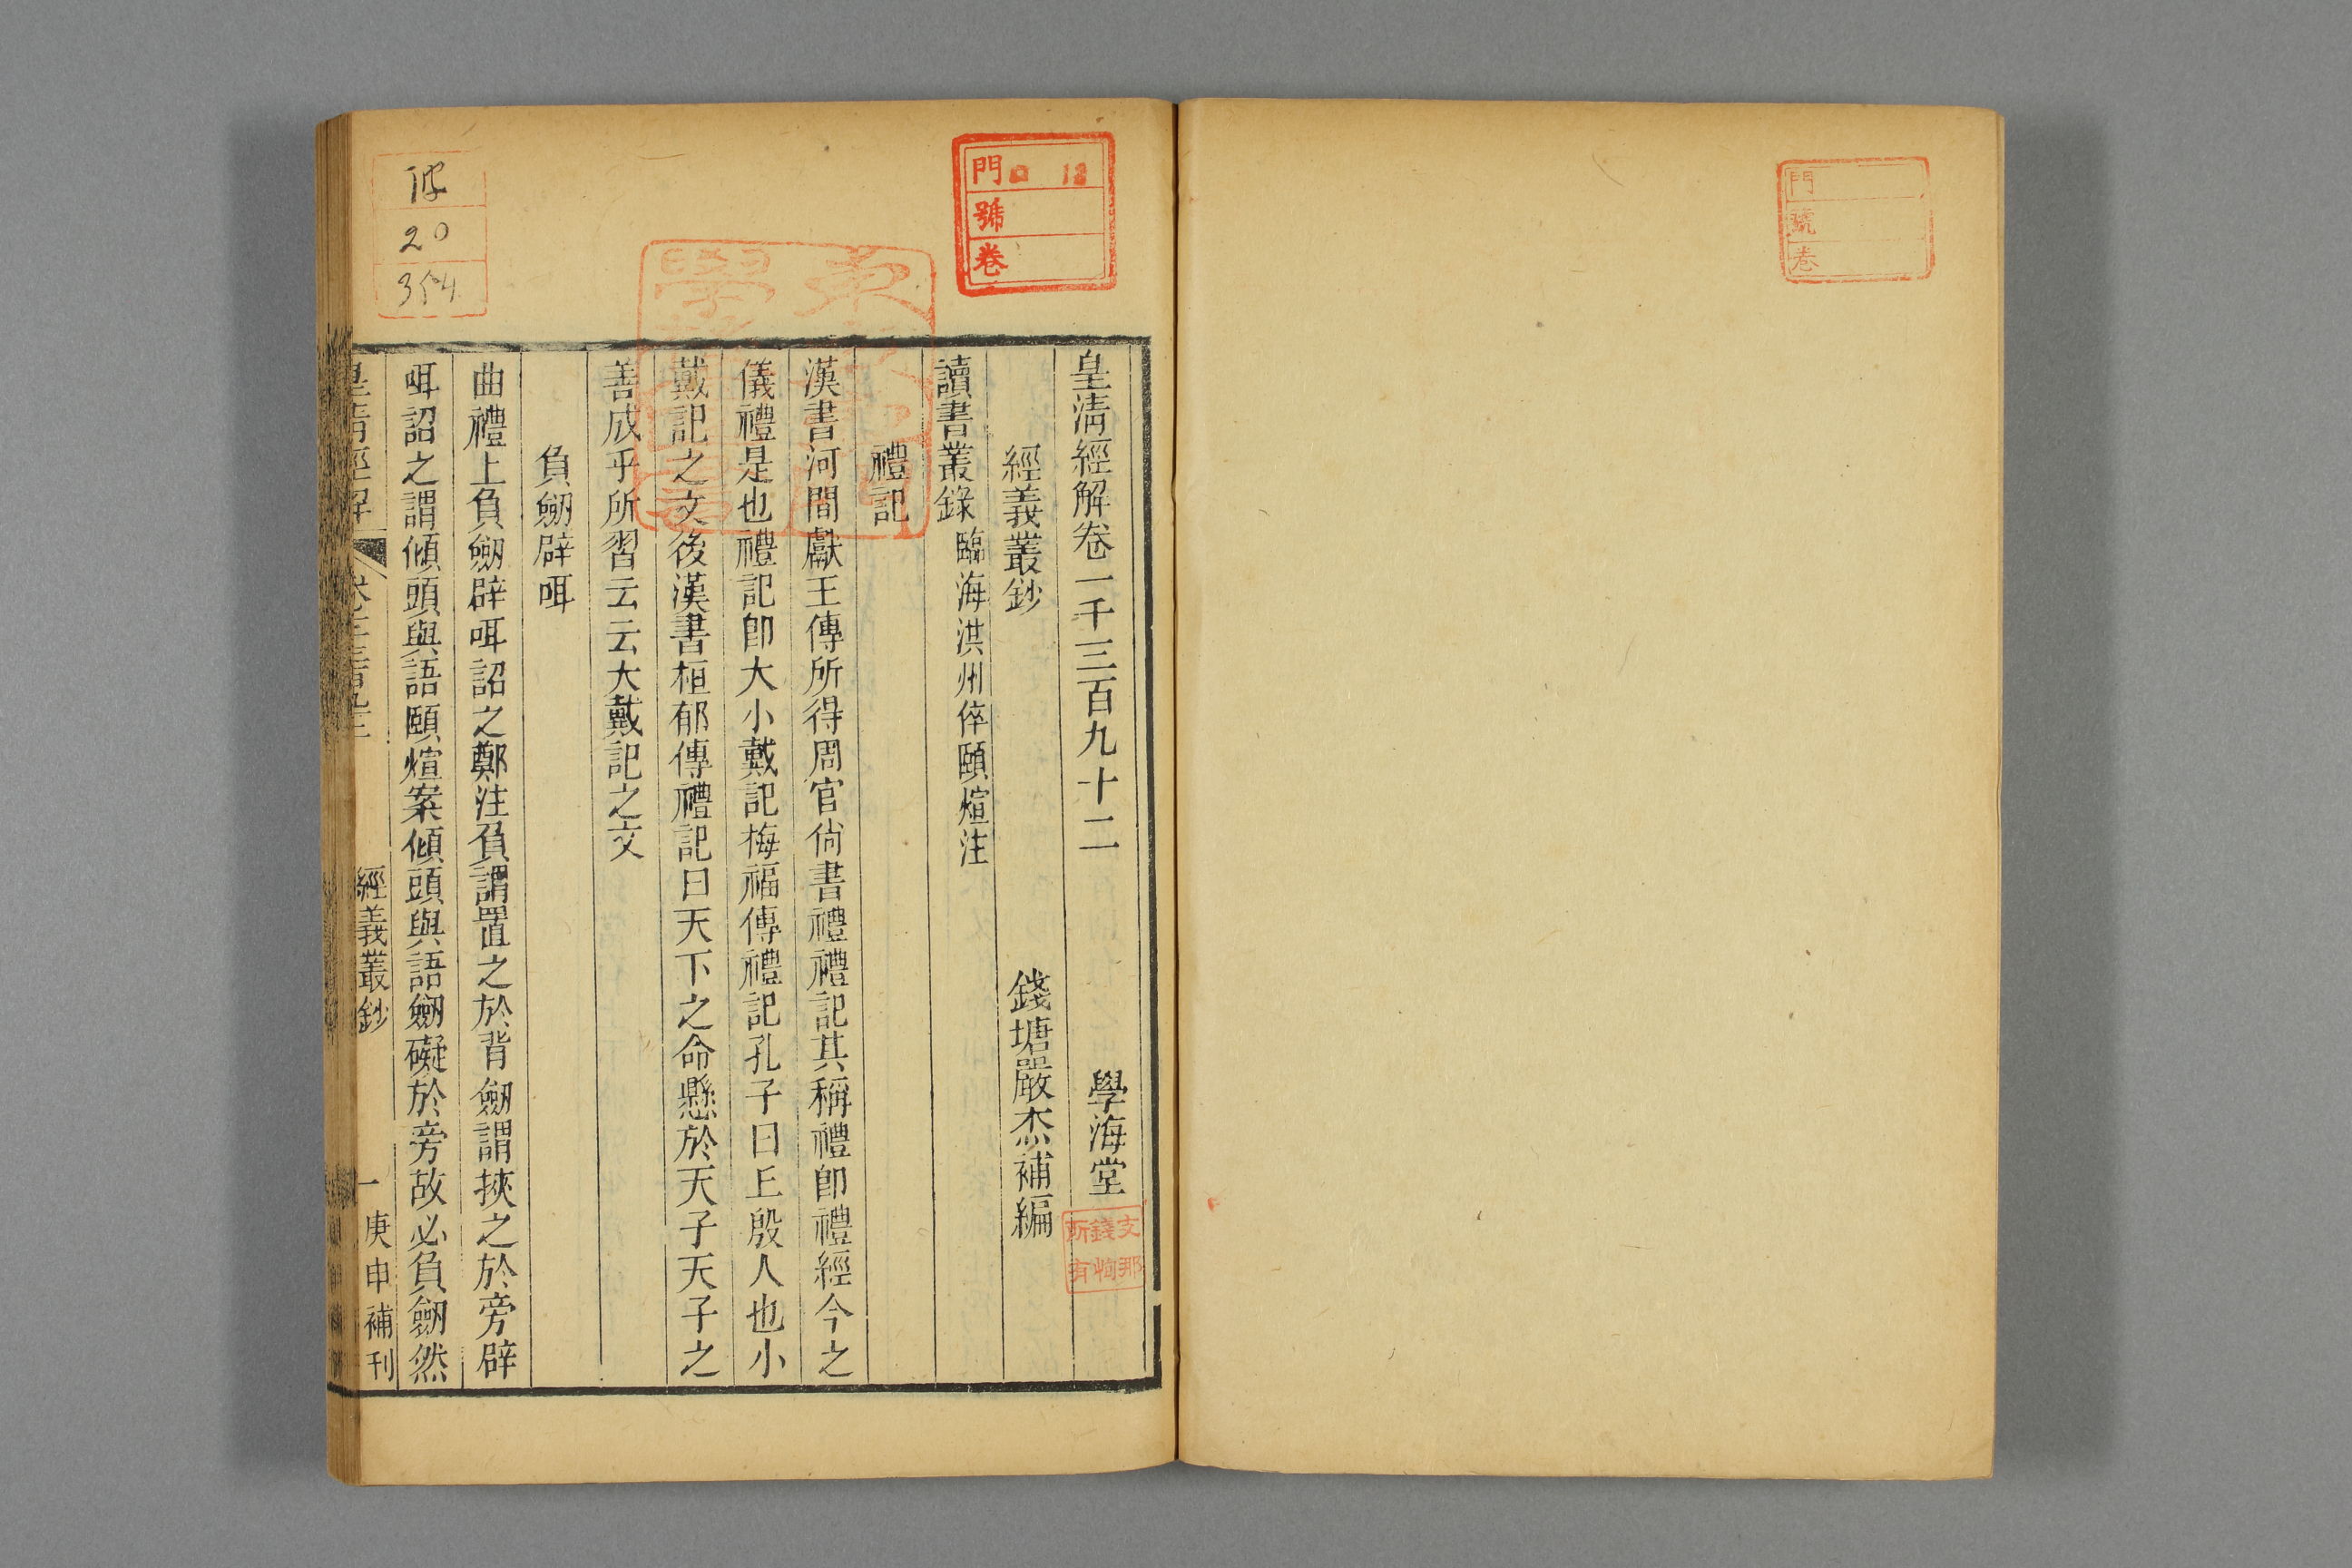 門
號
卷
門 口 13
號
卷
皇淸經解卷一千三百九十二
學海堂
經義叢鈔
錢塘嚴杰補編
讀書叢錄 臨海洪州倅頤煊注
禮記
漢書河間獻王傳所得周官尙書禮禮記其稱禮卽禮經今之
儀禮是也禮記卽大小戴記梅福傳禮記孔子曰丘殷人也小
戴記之文後漢書桓郁傳禮記曰天下之命懸於天子天子之
善成乎所習云云大戴記之文
負劒辟咡
曲禮上負劒辟咡詔之鄭注負謂置之於背劒謂挾之於旁辟
咡詔之謂傾頭與語頤煊案傾頭與語劒礙於旁故必負劒然
皇淸經解
經義叢鈔
一
庚申補刊
20
354